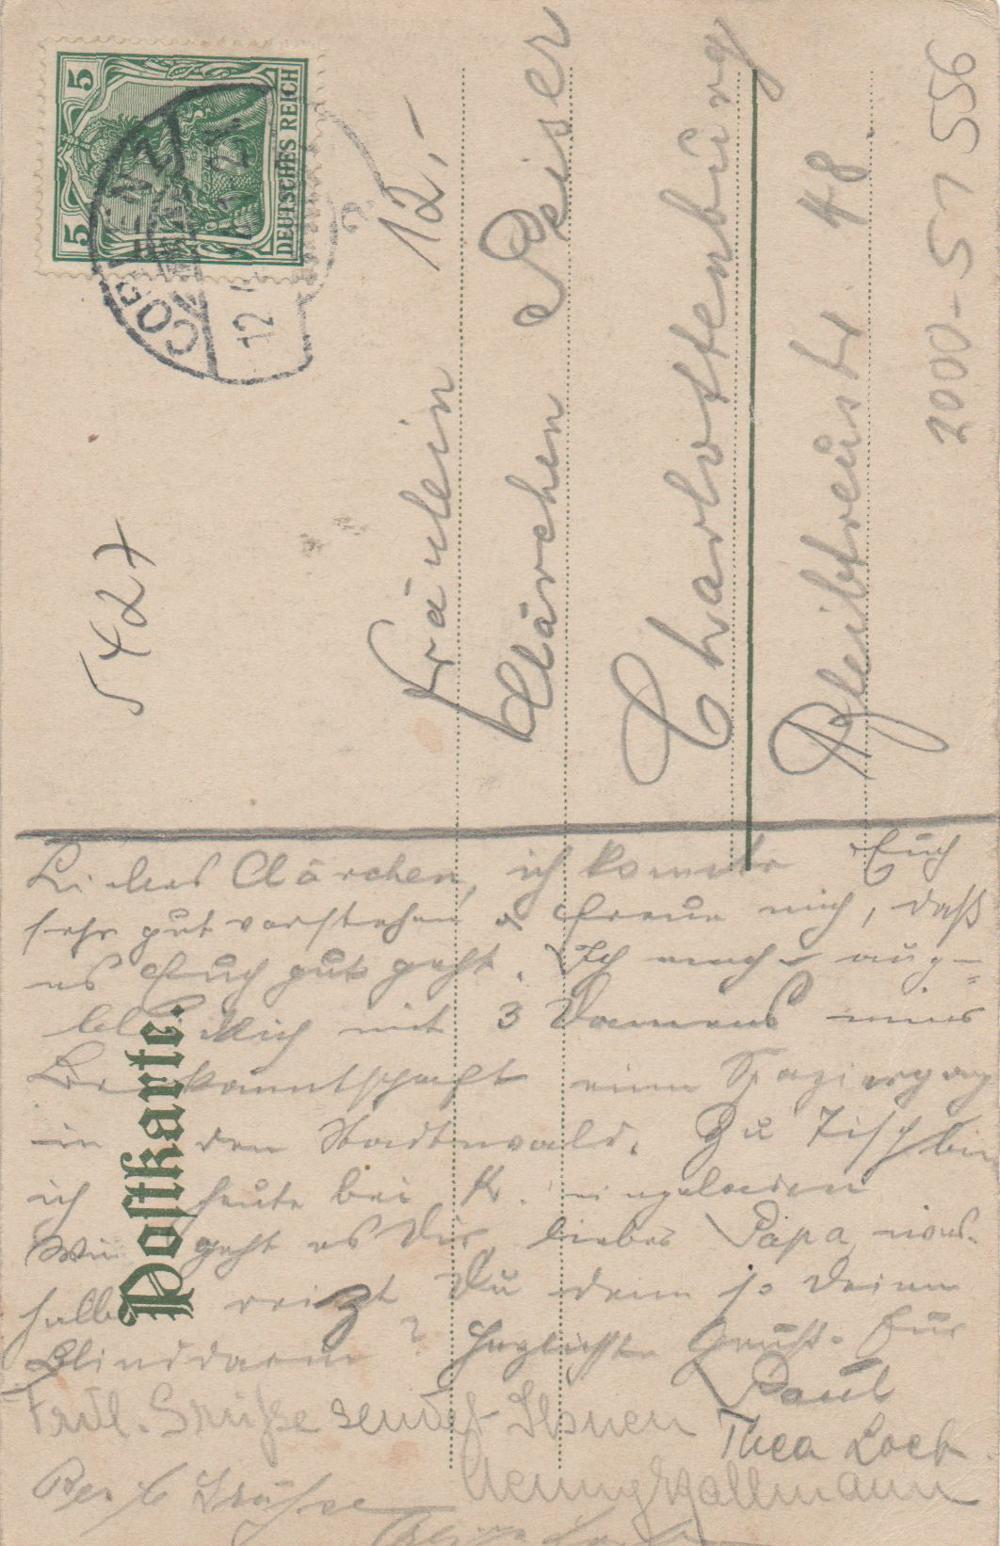 5
5
DEUTSCHES REICH
COBLENZ
12
12.-
5427
2000-51 556
Fräulein
Clärchen Peiser
Charlottenburg
Bleibtreustr 48
Postkarte.
Liebes Clärchen, ich konnte Euch
sehr gut verstehen & freue mich, daß
es Euch gut geht. Ich mache aug-
blicklich mit 3 Damen meiner
Bekanntschaft einen Spaziergang
in den Stadtwald. Zu Tisch bin
ich heute bei K. eingeladen
Wie geht es Dir, lieber Papa, wes-
halb reizt Du denn so Deinen
Blinddarm? Herzlichste Grüße Euer
Paul
Frdl. Grüsse sendet Ihnen
Thea Loeb
Grüsse